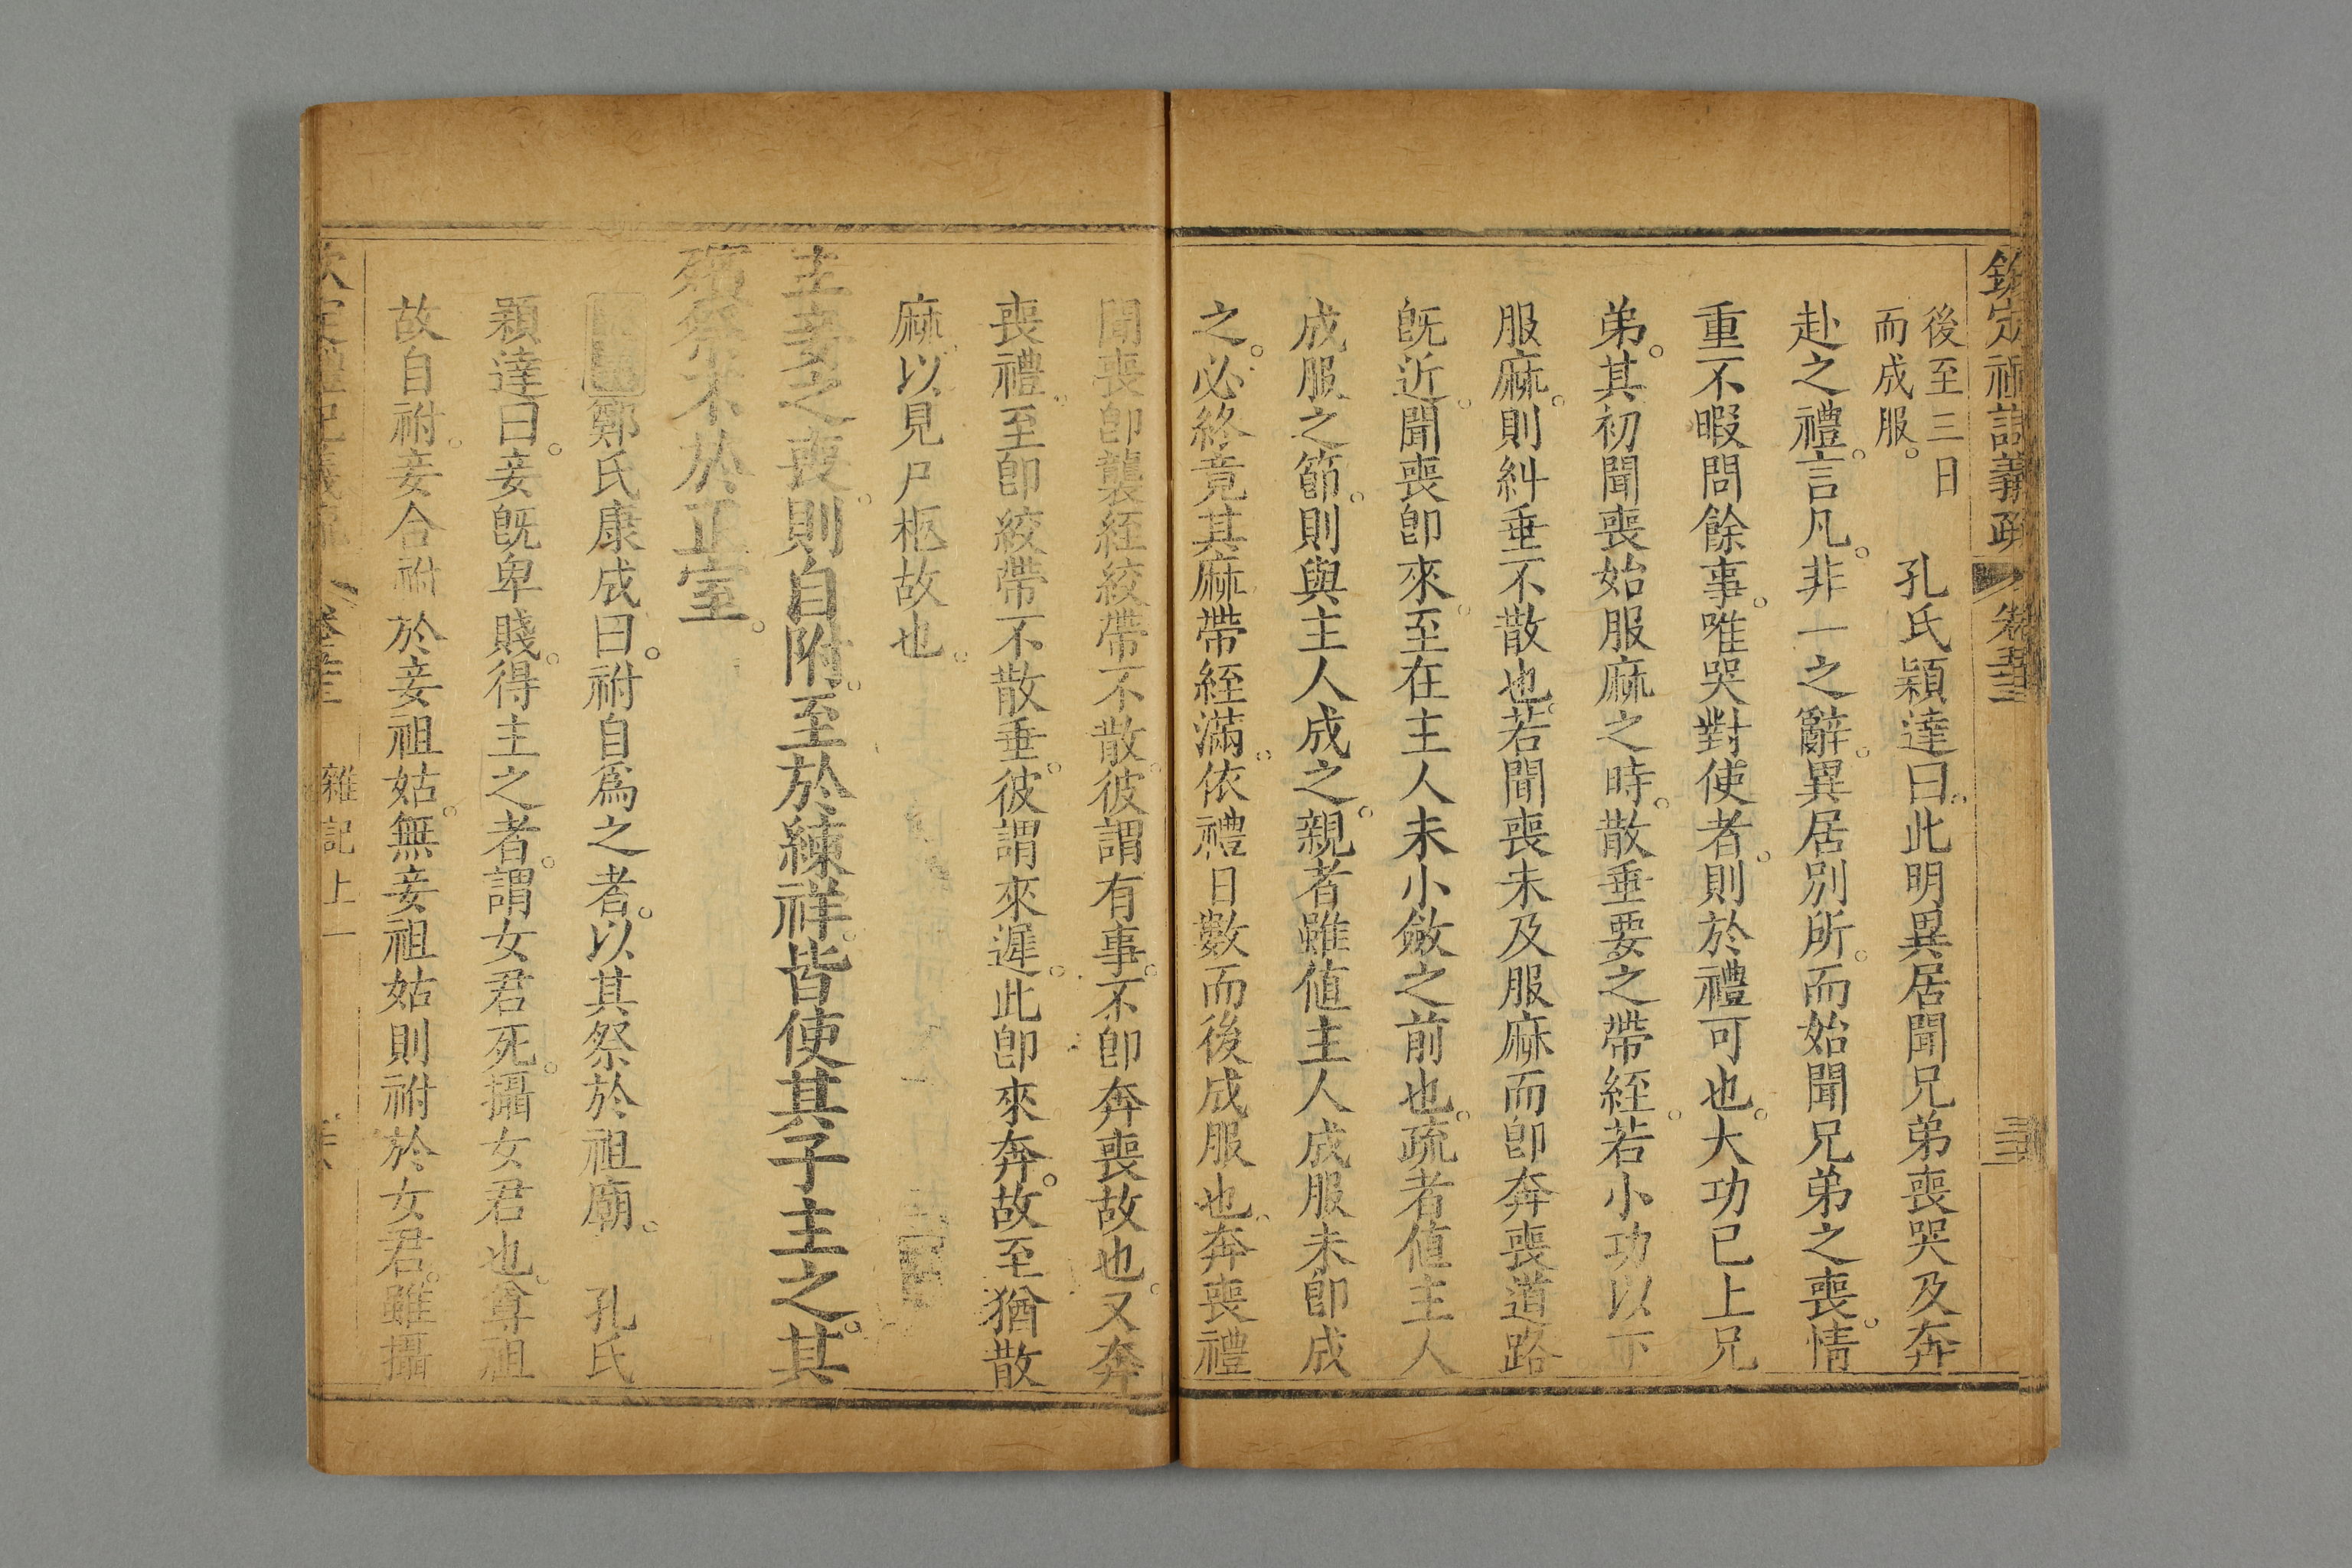 欽定禮記義疏 卷五十三
後至三日
而成服。
孔氏穎達曰。此明異居聞兄弟喪哭及奔
赴之禮。言凡。非一之辭。異居別所。而始聞兄弟之喪。情
重不暇問餘事。唯哭對使者。則於禮可也。大功已上兄
弟。其初聞喪始服麻之時。散垂要之帶絰。若小功以下
服麻。則糾垂不散也。若聞喪未及服麻而卽奔喪道路
旣近。聞喪卽來。至在主人未小斂之前也。疏者値主人
成服之節。則與主人成之。親者雖値主人成服未卽成
之。必終竟其麻帶絰滿。依禮日數而後成服也。奔喪禮
聞喪卽襲絰絞帶不散。彼謂有事。不卽奔喪故也。又奔
喪禮。至卽絞帶不散垂。彼謂來遲。此卽來奔。故至猶散
麻。以見尸柩故也。
主妾之喪。則自祔。至於練祥。皆使其子主之。其
殯祭不於正室。
鄭氏康成曰。祔自爲之者。以其祭於祖廟。 孔氏
穎達曰。妾旣卑賤。得主之者。謂女君死。攝女君也。尊祖
故自祔。妾合祔於妾祖姑。無妾祖姑則祔於女君。雖攝
欽定禮記義疏 雜記上一